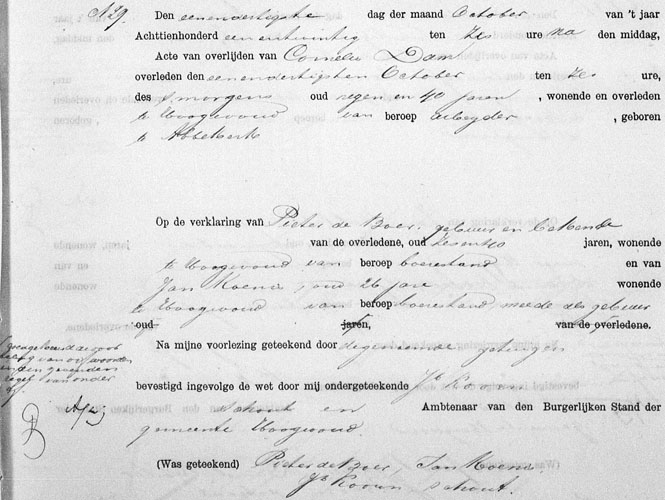 N 29. Den eenendertigste dag der maand October van 't jaar
Achttienhonderd eenentwintig ten zes ure na den middag,
Acte van overlijden van Cornelis Dam
overleden den eenendertigsten October ten zes ure,
des s'morgens oud negen en 40 jaren, wonende en overleden
te Hoogwoud van beroep arbeyder, geboren
te Abbekerk
Op de verklaring van Pieter de Boer, gebuur en bekende
van de overledene, oud jaren, wonende
te Hoogwoud van beroep boerestand en van
Jan Koene, oud 26 jare wonende
te Hoogwoud van beroep boerestand mede als gebuur
oud jaren, van de overledene.
Na mijne voorlezing geteekend door de gemeende getuigen
bevestigd ingevolge de wet door mij ondergeteekende
schout en Ambtenaar van den Burgerlijken Stand der
gemeente Hoogwoud.
(Was geteekend) Pieter de Boer, Jan Koene
schout